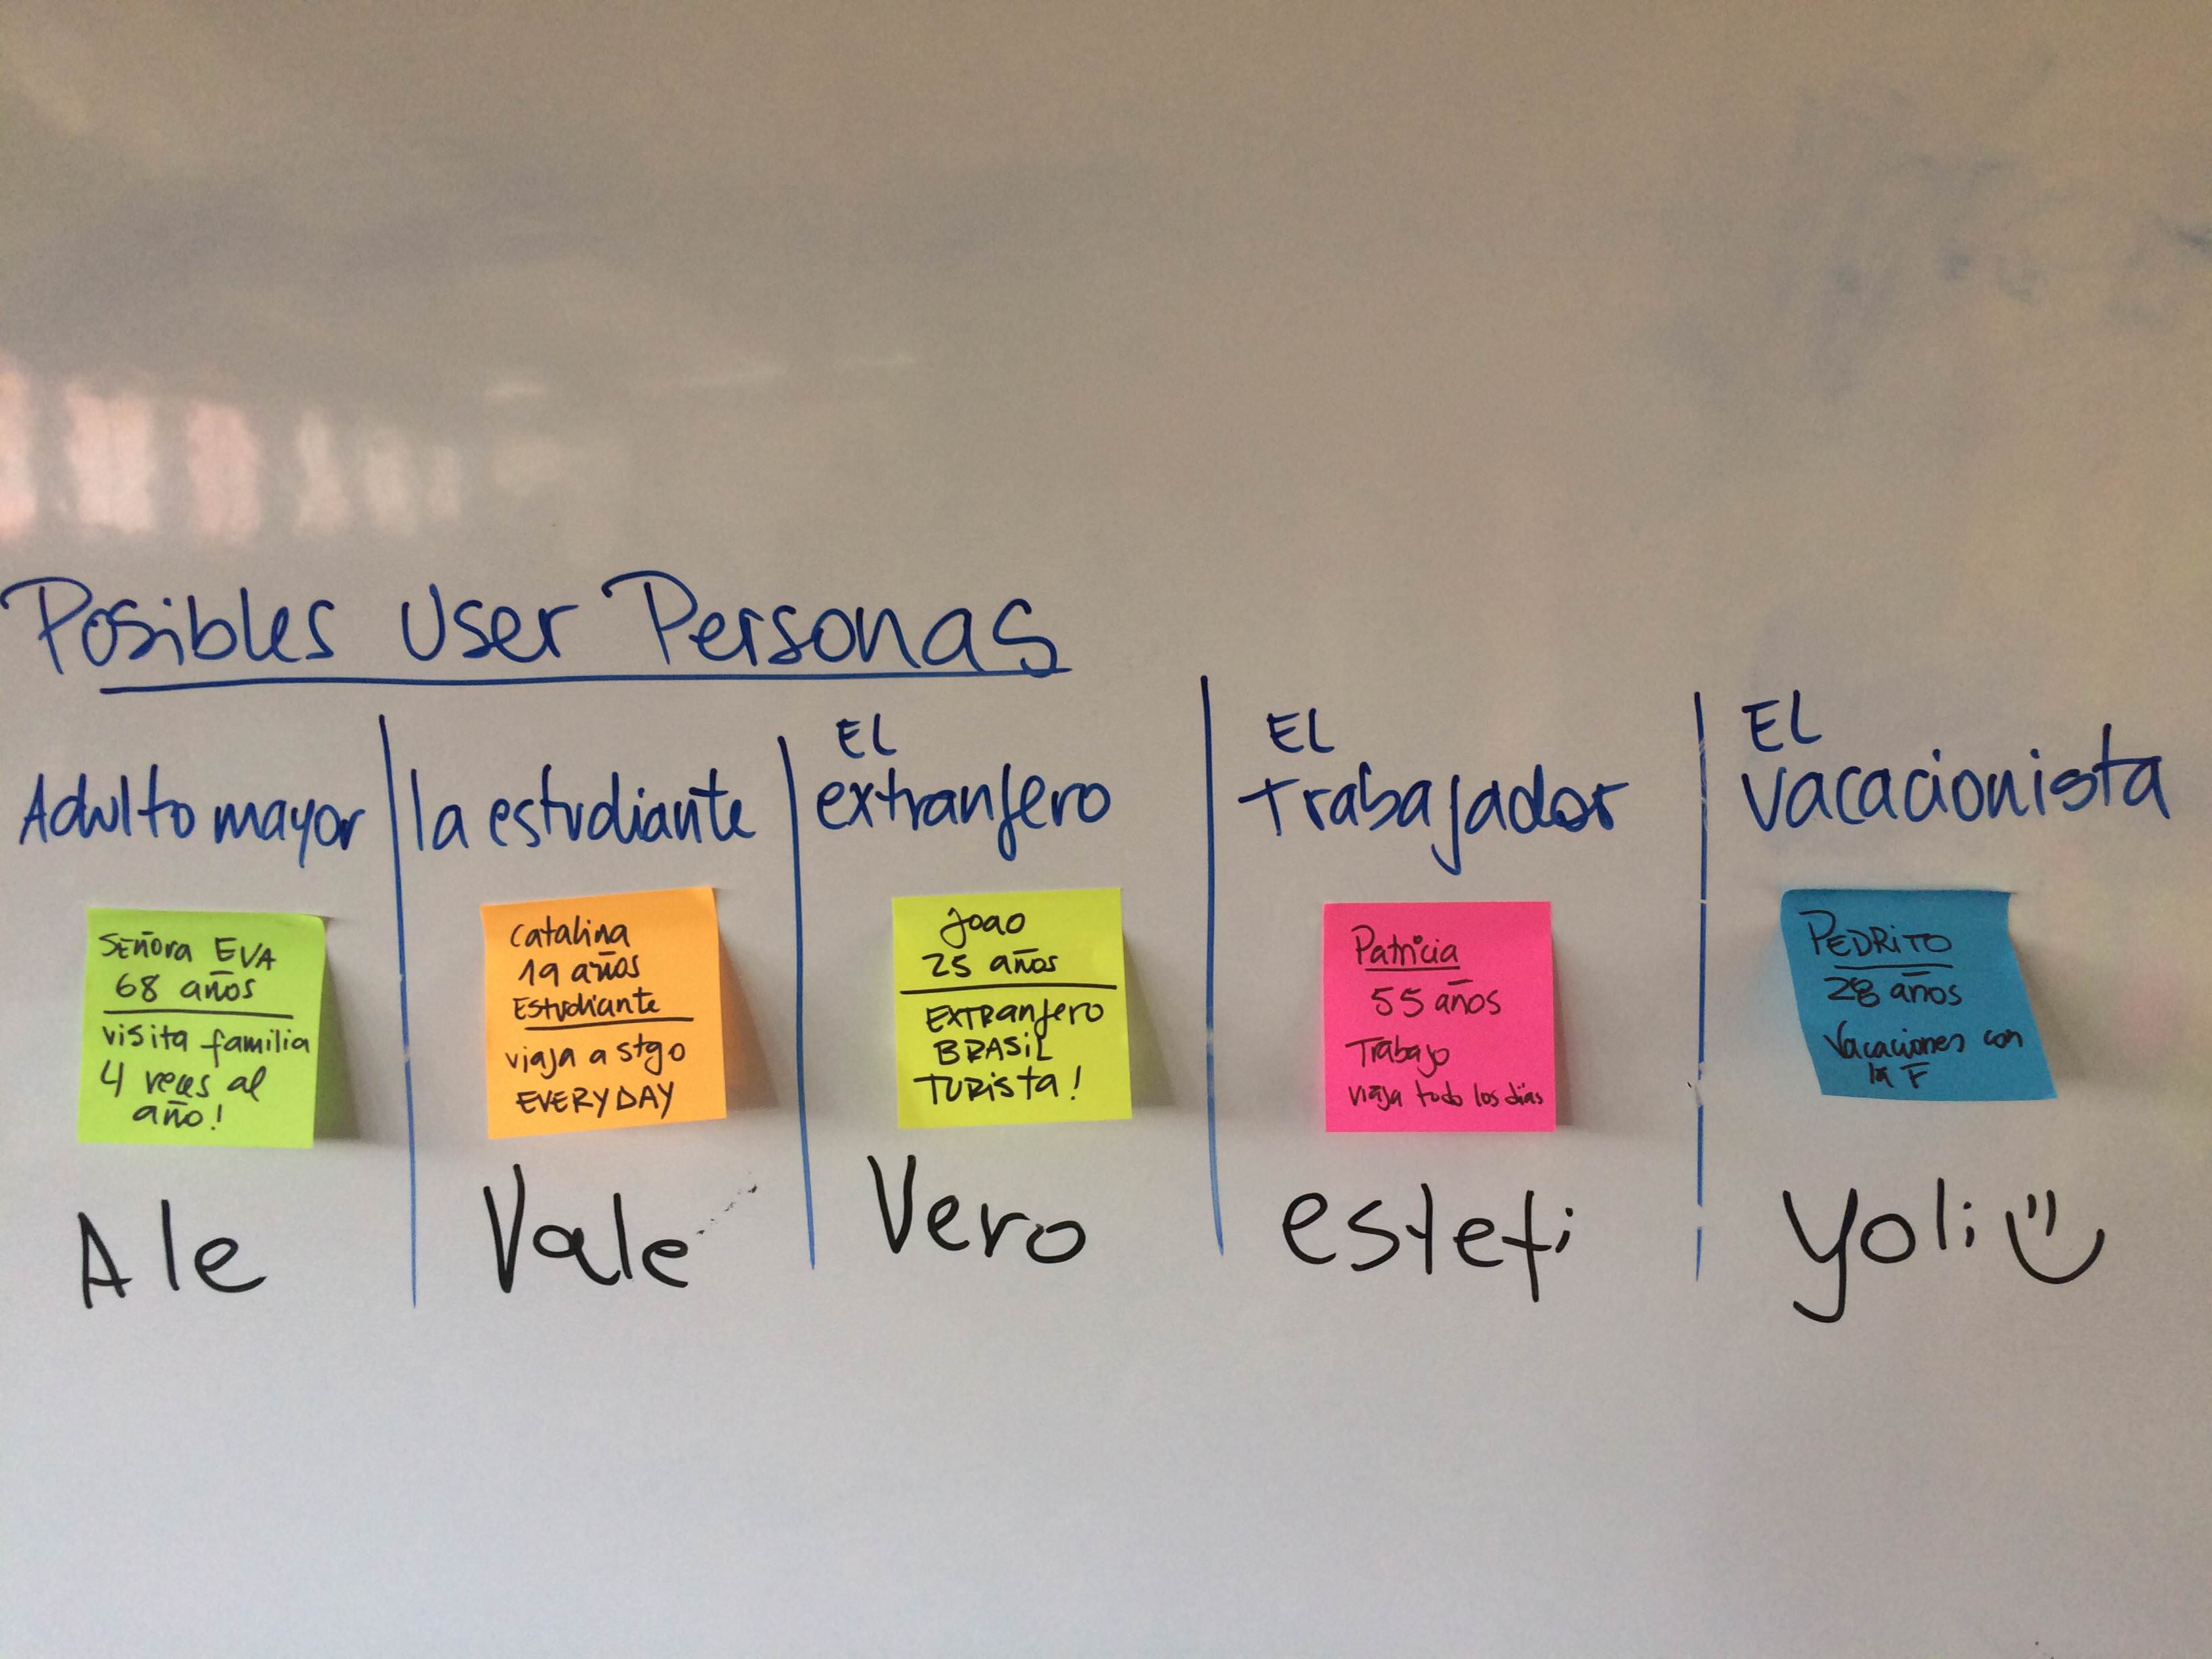 Posibles User Personas
Adulto mayor
SEÑora EVA
68 años
visita familia
4 veces al
año!
Ale
la estudiante
Catalina
19 años
Estudiante
viaja a stgo
EVERYDAY
Vale
EL
extranjero
Joao
25 años
EXTRanjero
BRASiL
TURista!
Vero
EL
trabajador
Patricia
55 años
Trabajo
viaja todo los días
estefi
EL
vacacionista
PEDRiTO
28 años
Vacaciones con
la F
Yoli